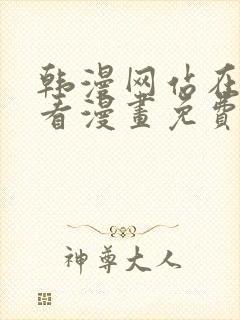 韩漫网站在
看漫畫免費
神尊大人